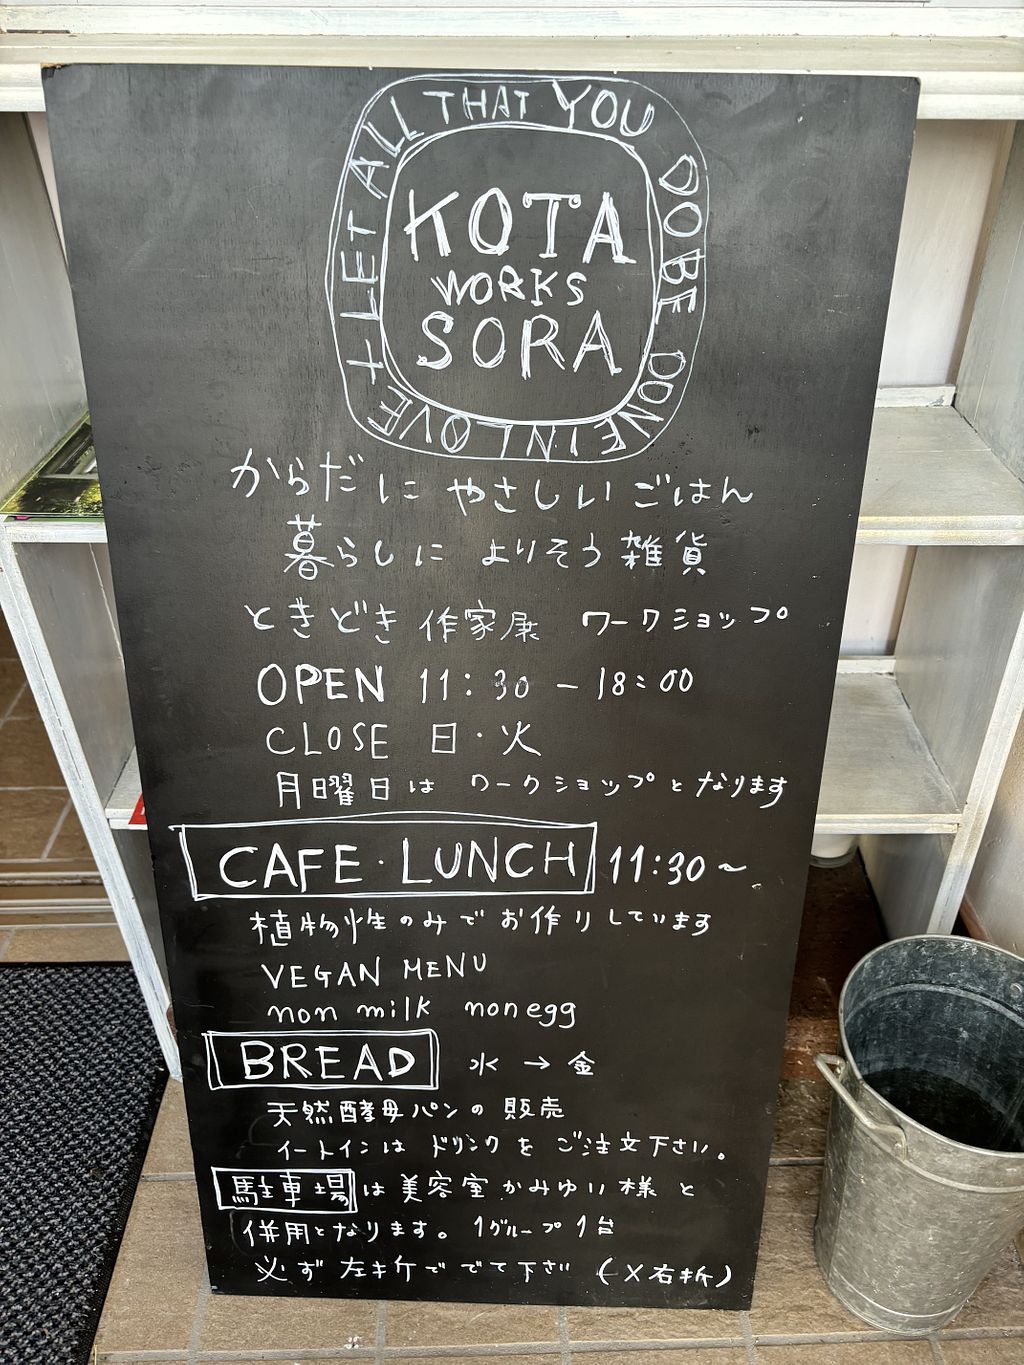 LET ALL THAT YOU DO BE DONE IN LOVE +
KOTA
WORKS
SORA
からだに やさしい ごはん
暮らしに よりそう 雑貨
ときどき 作家展 ワークショップ
OPEN 11:30 - 18:00
CLOSE 日・火
月曜日は ワークショップとなります
CAFE・LUNCH 11:30~
植物性のみで お作りしています
VEGAN MENU
non milk non egg
BREAD 水 → 金
天然酵母パンの 販売
イートインは ドリンクを ご注文下さい。
駐車場 は 美容室 かみゆい様 と
併用となります。 1グループ1台
必ず 左折で でて下さい (×右折)